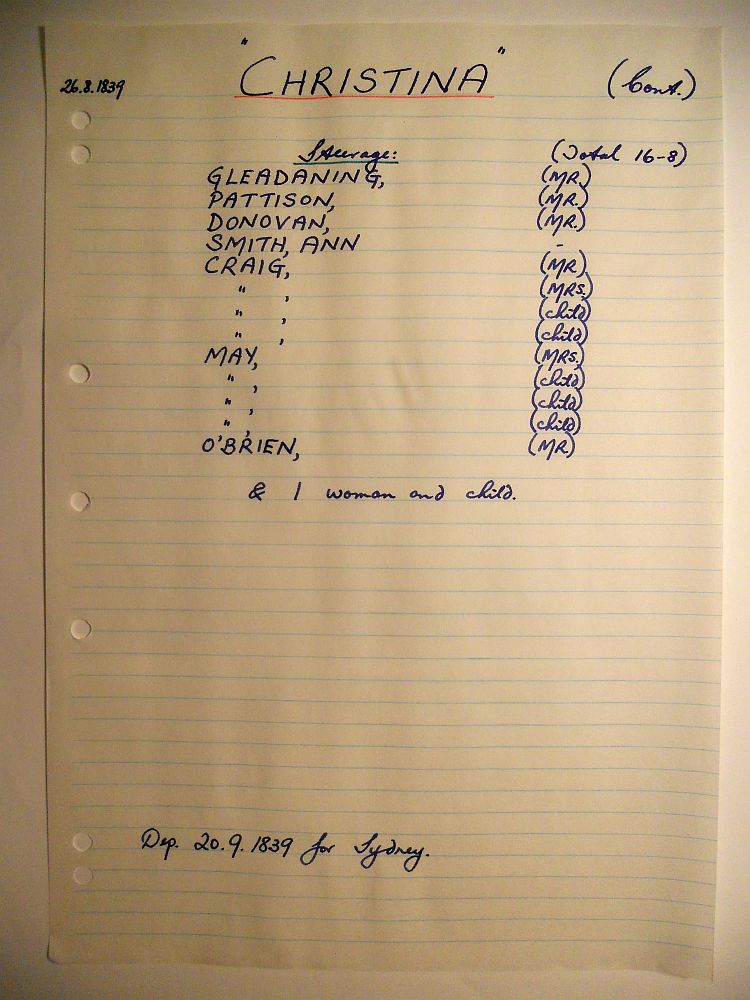 26.8.1839 "CHRISTINA" (Cont.)
Steerage: (Total 16-8)
GLEADANING, (MR.)
PATTISON, (MR.)
DONOVAN, (MR.)
SMITH, ANN -
CRAIG, (MR)
" , (MRS.)
" , (child)
" , (child)
MAY, (MRS.)
" , (child)
" , (child)
" , (child)
O'BRIEN, (MR.)
& 1 woman and child.
Dep. 20.9.1839 for Sydney.